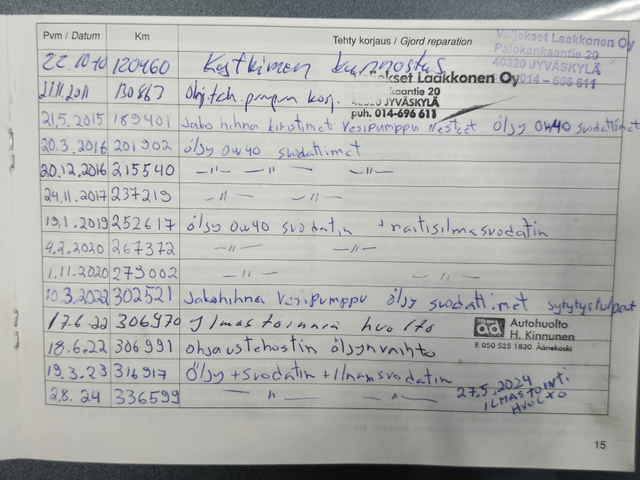 Pvm / Datum Km Tehty korjaus / Gjord reparation
Veljekset Laakkonen Oy
Palokankaantie 20
40320 JYVÄSKYLÄ
014 - 696 611
22.10.10 120460 Kytkimen kunnostus
Laakkonen Oy
kaantie 20
40320 JYVÄSKYLÄ
puh. 014-696 611
21.11.2011 130863 korj.
21.5.2015 189401 Jako hihna kiristimet Vesipumppu Nesteet öljy 0w40 suodattimet
20.3.2016 201902 öljy 0w40 suodattimet
20.12.2016 215540 –"– –"– –"–
24.11.2017 237219 –"– –"–
19.1.2019 252617 öljy 0w40 suodatin + raitisilmasuodatin
4.2.2020 267372 –"– –"–
1.11.2020 279002 –"– –"–
10.3.2022 302521 Jakohihna Vesipumppu öljy suodattimet sytytystulpat
17.6.22 306970 Ilmastoinnin huolto
ad Autohuolto
H. Kinnunen
P. 050 525 1830 Äänekoski
18.6.22 306991 ohjaustehostin öljynvaihto
19.3.23 316917 Öljy + suodatin + ilmansuodatin
2.8.24 336599 –"– –"–
27.5.2024
ILMASTOINTI
HUOLTO
15